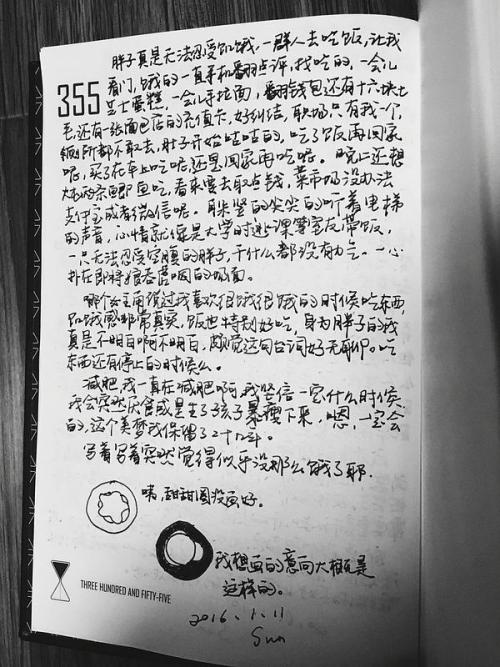 胖子真是无法忍受饥饿,一群人去吃饭,让我
看门,饿的一直手机翻点评,找吃的,一会儿
355
芝士蛋糕,一会儿手拉面,翻翻钱包还有十六块七
毛,还有一张面包店的充值卡,好纠结,职场只有我一个,
厕所都不敢去,肚子开始哇哇的,吃了饭再回家
呢,买了在车上吃呢还是回家再吃呢。晚上还想
大两条鱼吃,看来要去取点钱,菜市场没办法
支付宝或者微信呢。耳朵竖的尖尖的听着电梯
的声音,心情就像是大学时逃课等室友带饭,
一只无法忍受空腹的胖子,干什么都没有力气。一心
扑在即将狼吞虎咽的 面。
哪个女主角说过我喜欢很饿很饿的时候吃东西,
饥饿感非常真实,饭也特别好吃,身为胖子的我
真是不明白啊不明白,颇觉这句台词好无聊。吃
东西还有停止的时候么。
减肥,我一直在减肥啊,我坚信一定什么时候
我会突然厌食或是生了孩子暴瘦下来,嗯,一定会
的,这个美梦我保留了二十几年。
写着写着突然觉得似乎没那么饿了耶。
咦,甜甜圈没画好。
我想画的意向大概是
这样的。
THREE HUNDRED AND FIFTY-FIVE
2016.1.11
Sun